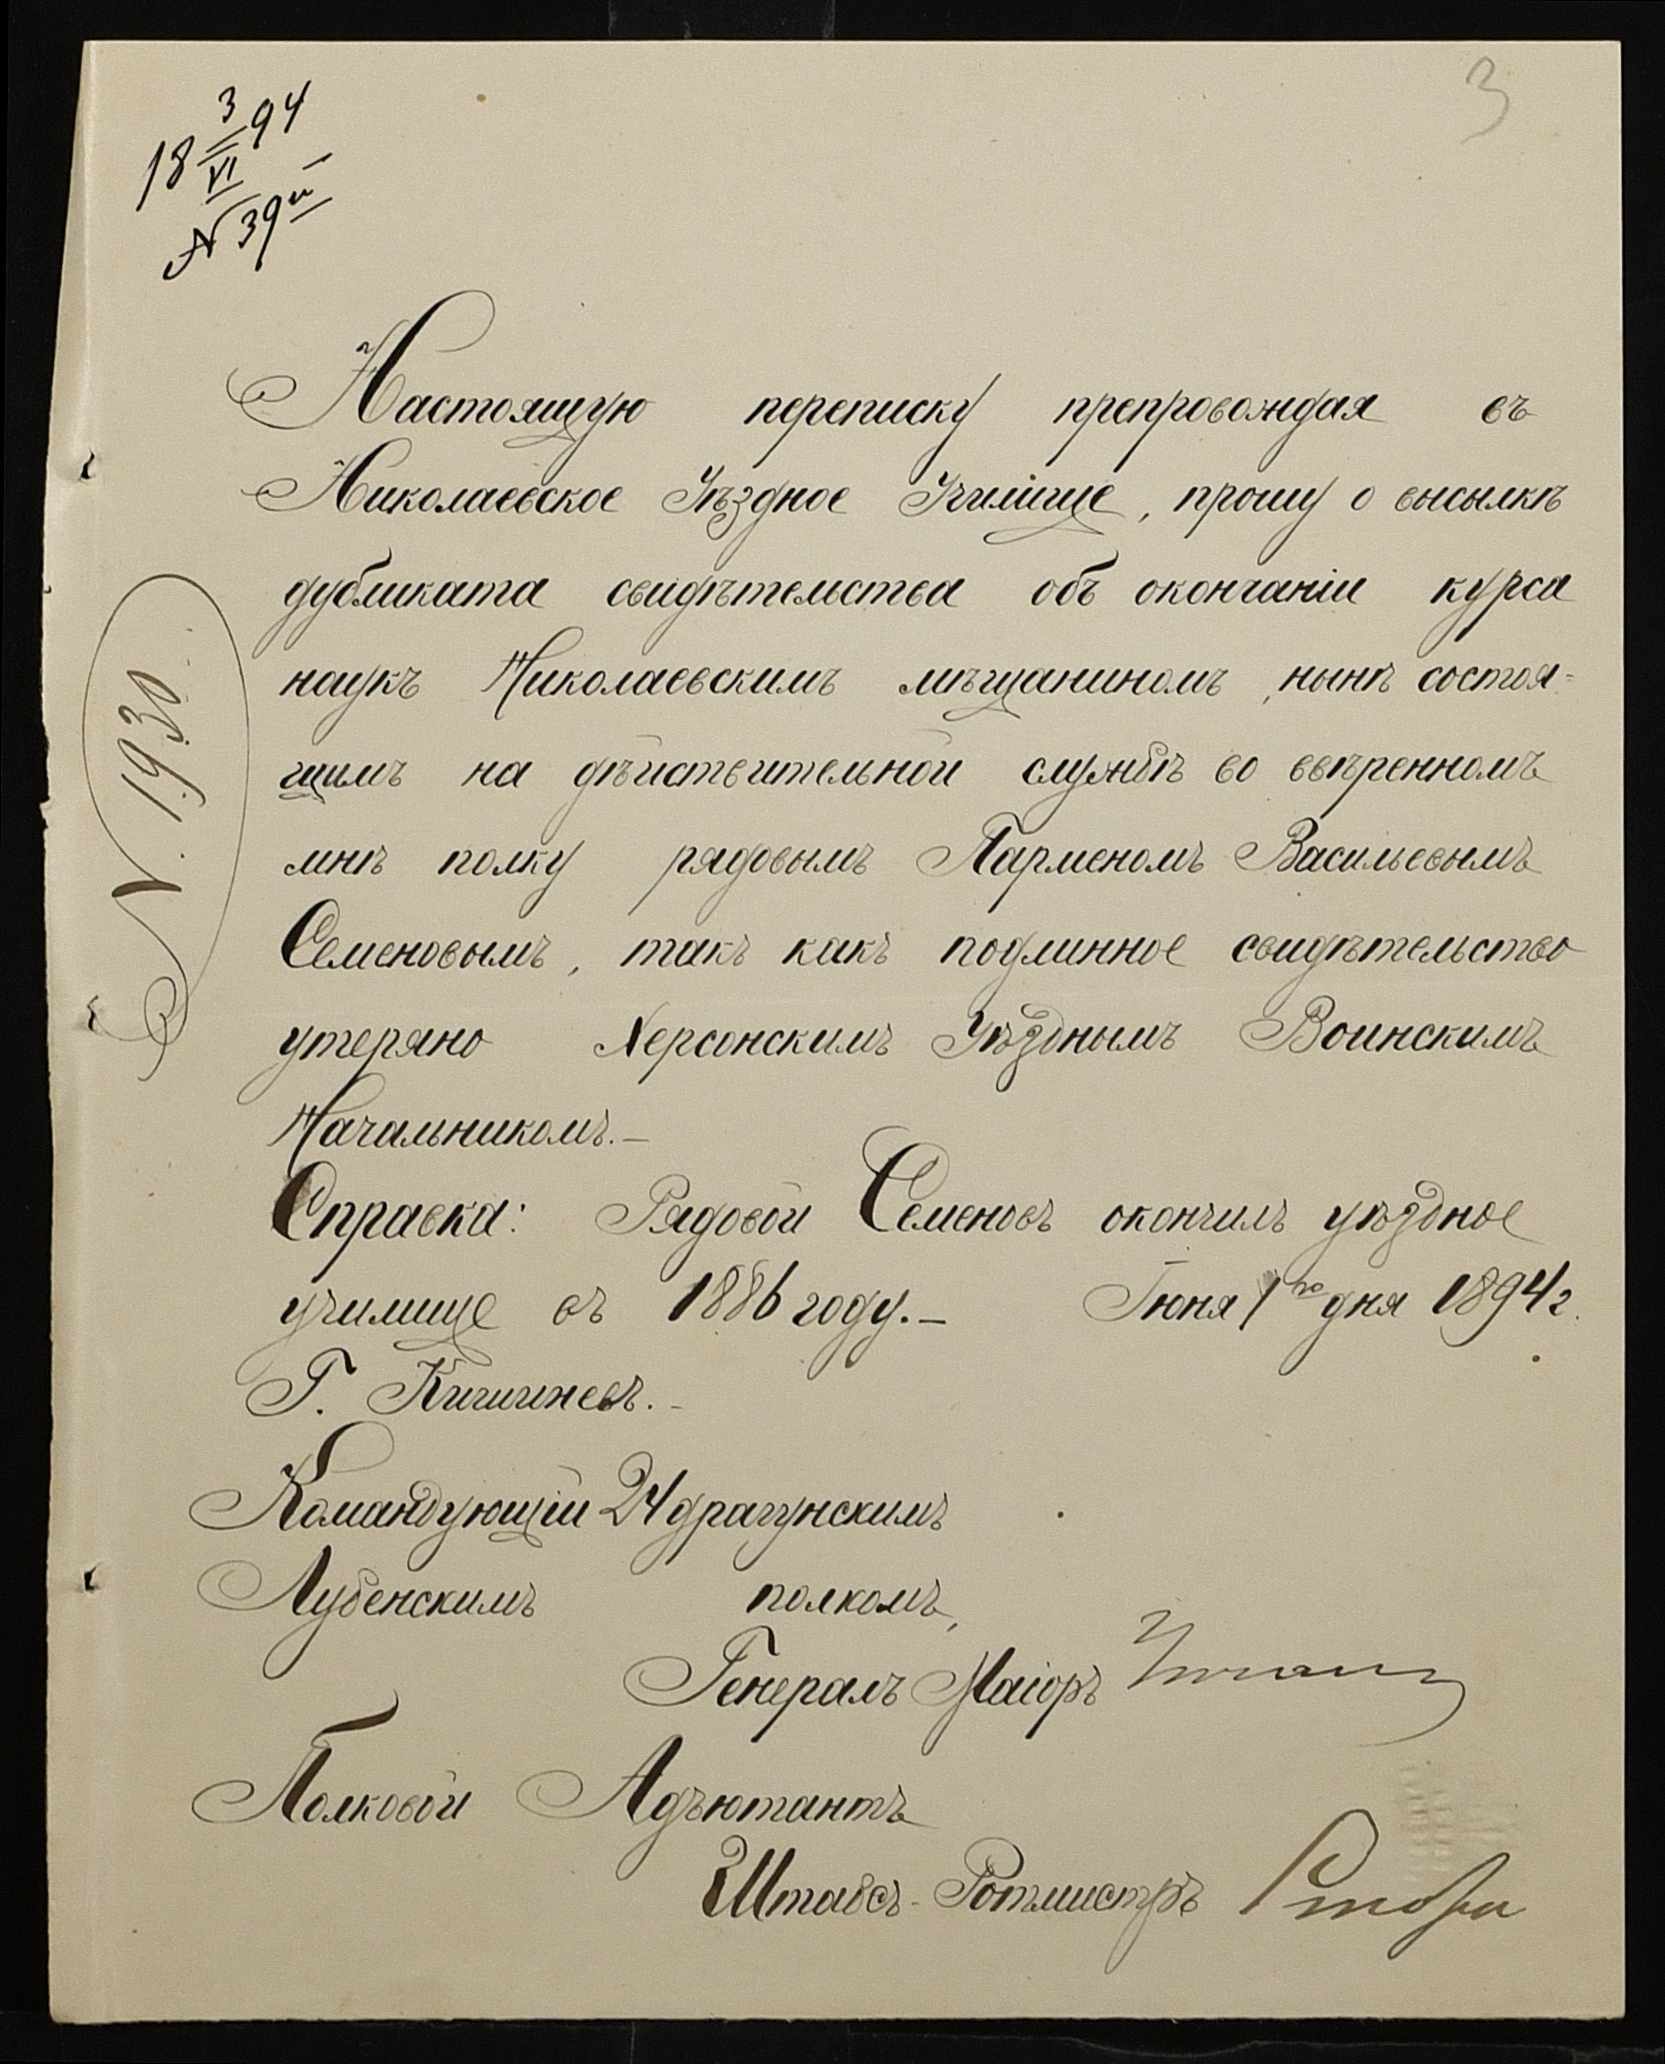 3
18 3/VI 94
№ 39й
Настоящую переписку препровождая въ
Николаевское Уѣздное Училище, прошу о высылкѣ
дубликата свидѣтельства объ окончаніи курса
наукъ Николаевскимъ мѣщаниномъ, нынѣ состоя-
щимъ на дѣйствительной службѣ во ввѣренномъ
мнѣ полку рядовымъ Парменомъ Васильевымъ
Семеновымъ, такъ какъ подлинное свидѣтельство
утеряно Херсонскимъ Уѣзднымъ Воинскимъ
Начальникомъ.—
Справка: Рядовой Семеновъ окончилъ уѣздное
училище въ 1886 году.— Іюня 1го дня 1894 г.
Г. Кишиневъ.—
Командующій 24 драгунскимъ
Лубенскимъ полкомъ,
Генералъ Маіоръ
Полковой Адъютантъ
Штабсъ-Ротмистръ
N. 1930